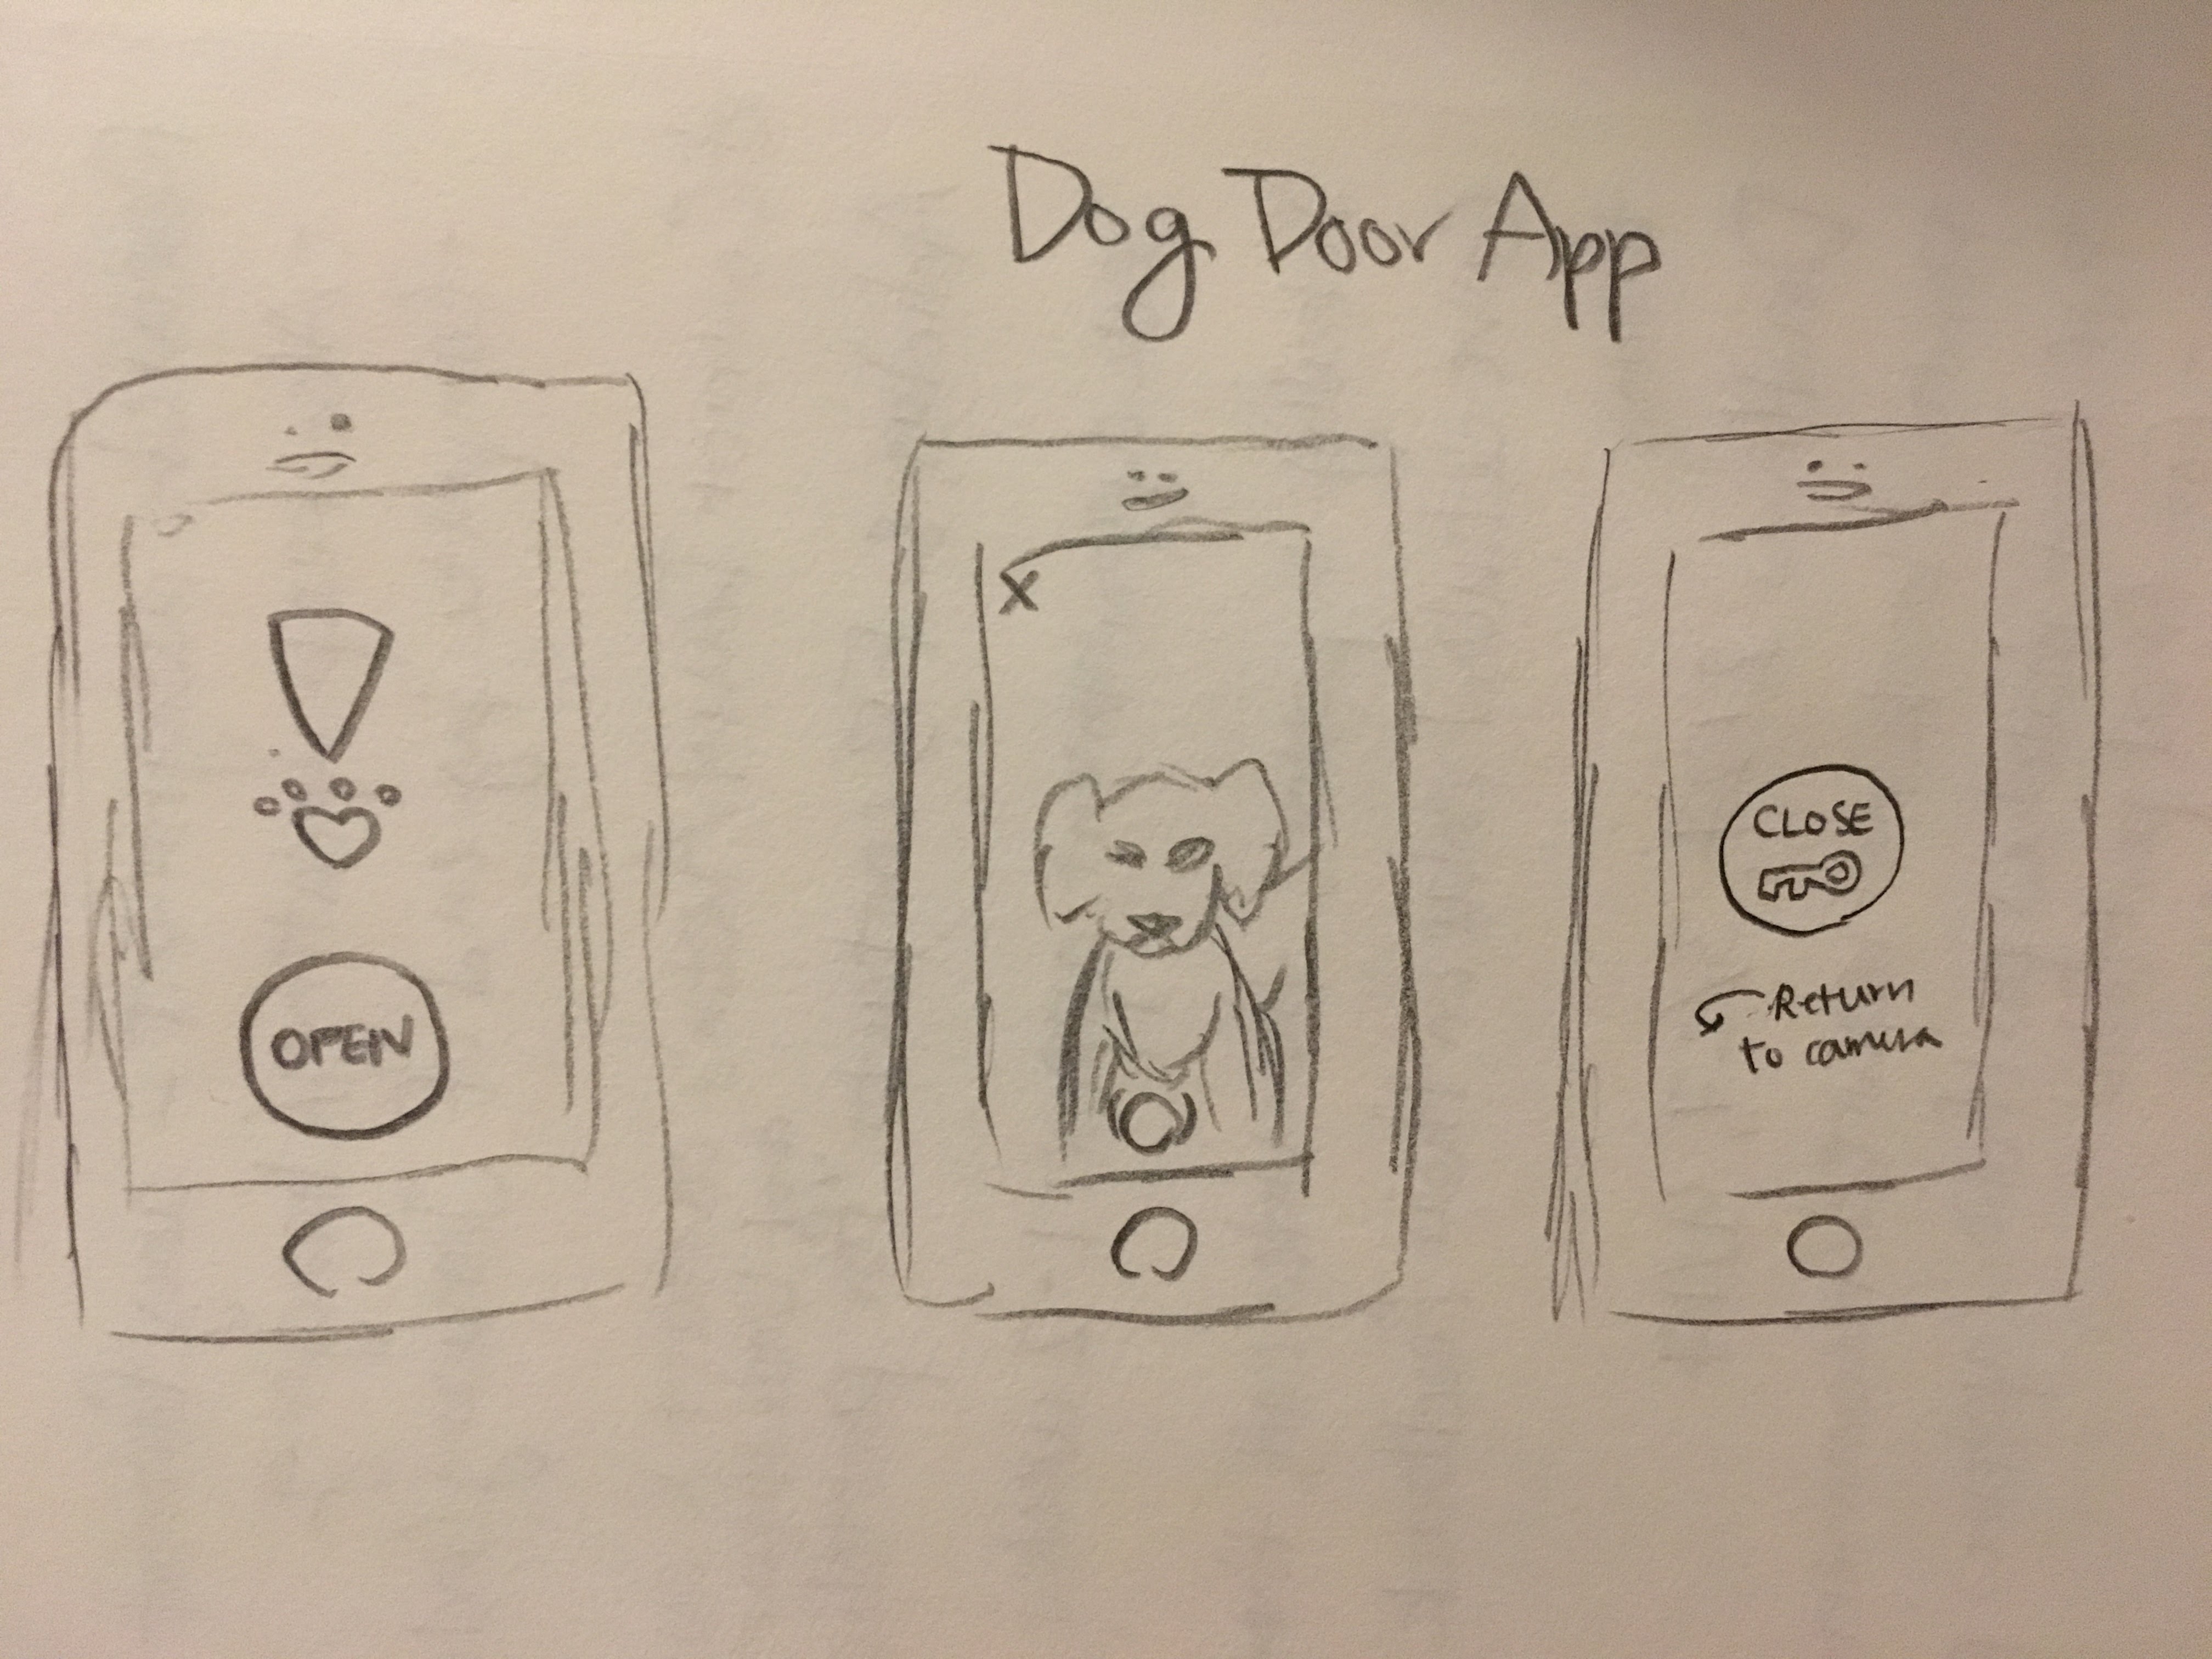 Dog Door App
OPEN
X
CLOSE
Return
to camera